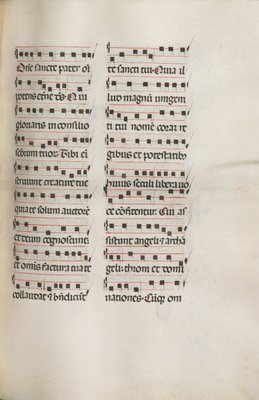 Dne sancte pater oı
potens eterne ds Qui
glorians in consilio
sedium tuorum. Tibi enim
seruiunt creature tue
qui a te solum auctorem
et deum cognoscunt
et omnis factura tua te
collaudat et benedicunt
te sancti tui. Quia il
lud magnum unigeni
ti tui nomen coram re
gibus et potestatibus
huius seculi libera uo
ce confitentur. Cui as
sistunt angeli et archan
geli. throni et domi
nationes. Cumque om